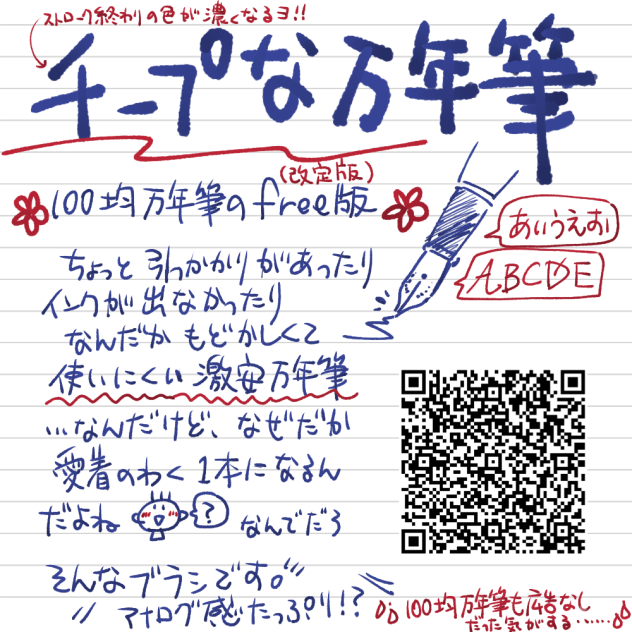 ストローク終わりの色が濃くなるヨ!!
チープな万年筆
(改定版)
100均万年筆のfree版
あいうえお
ABCDE
ちょっと引っかかりがあったり
インクが出なかったり
なんだかもどかしくて
使いにくい激安万年筆
…なんだけど、なぜだか
愛着のわく1本になるん
だよね
?
なんでだろ
そんなブラシです。
アナログ感たっぷり!?
100均万年筆も広告なし
だった気がする……